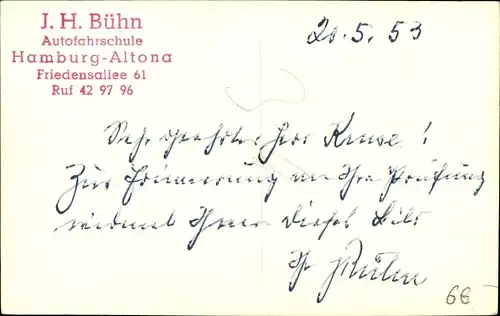 J. H. Bühn
Autofahrschule
Hamburg-Altona
Friedensallee 61
Ruf 42 97 96
20.5.53
Sehr geehrter Herr Kruse!
Zur Erinnerung an Ihre Prüfung
widmet Ihnen dieses Bild
JH Bühn
6€